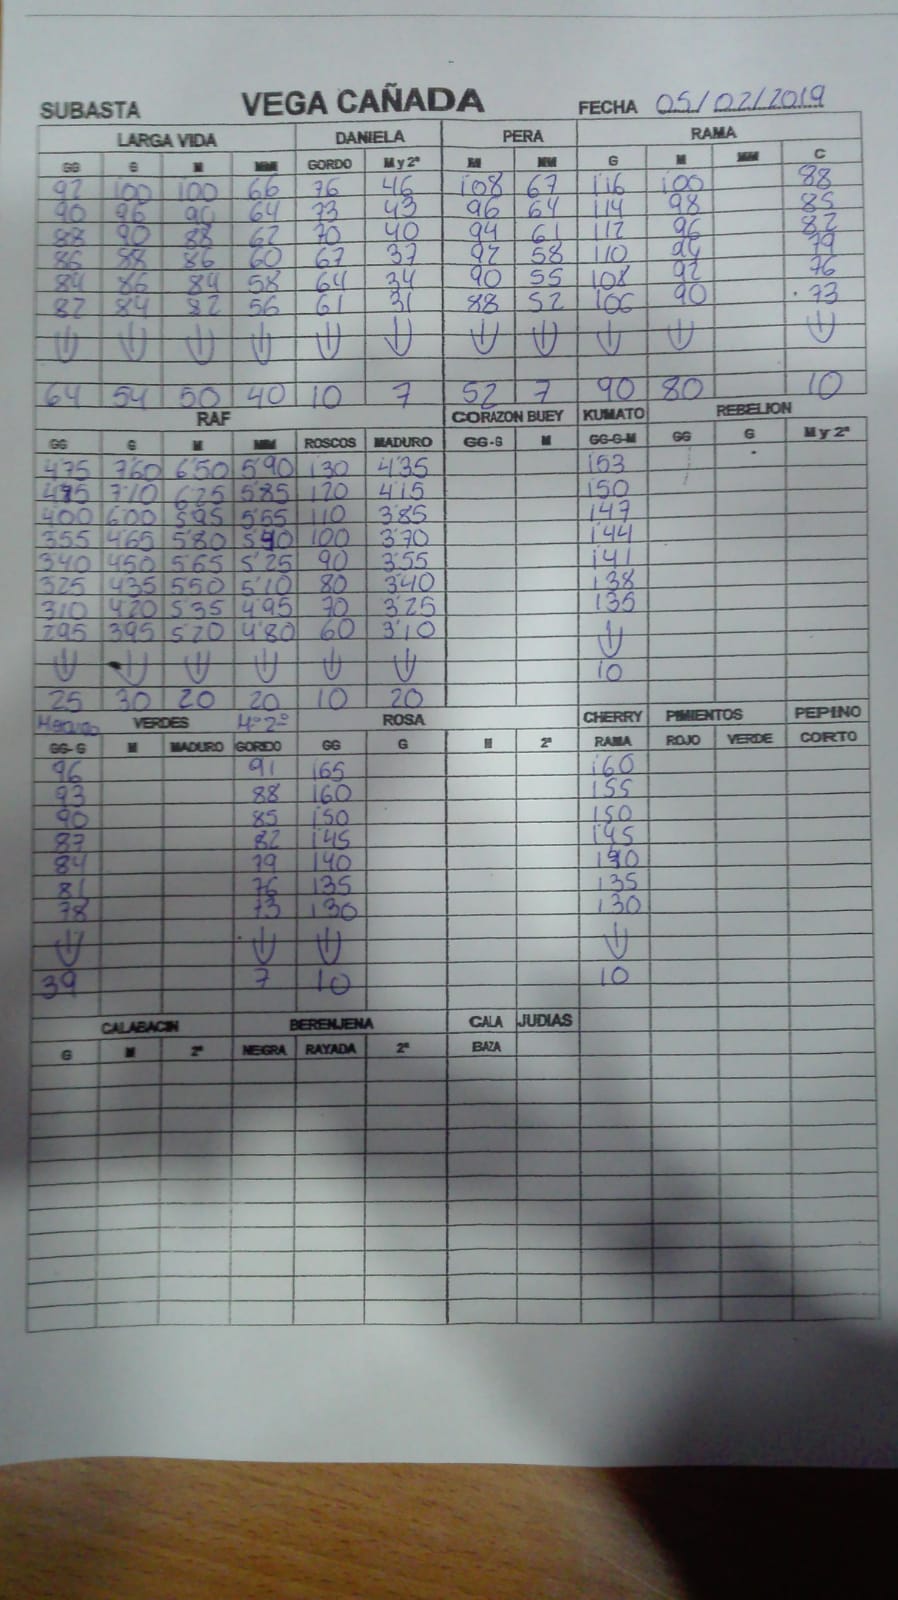 SUBASTA VEGA CAÑADA FECHA 05/02/2019
LARGA VIDA DANIELA PERA RAMA
GG G M MM GORDO M y 2ª M MM G M MM C
92 100 100 66 76 46 108 67 116 100 88
90 96 90 64 73 43 96 64 114 98 85
88 90 88 62 70 40 94 61 112 96 82
86 88 86 60 67 37 92 58 110 94 79
84 86 84 58 64 34 90 55 108 92 76
82 84 82 56 61 31 88 52 106 90 73
↓ ↓ ↓ ↓ ↓ ↓ ↓ ↓ ↓ ↓ ↓
64 54 50 40 10 7 52 7 90 80 10
RAF CORAZON BUEY KUMATO REBELION
GG G M MM ROSCOS MADURO GG-G M GG-G-M GG G M y 2ª
475 760 6'50 5'90 130 4'35 153
710 625 5'85 120 4'15 150
400 600 595 5'55 110 3'85 147
355 465 5'80 100 3'70 144
340 450 565 5'25 90 3'55 141
325 435 550 5'10 80 3'40 138
310 420 5'35 4'95 70 3'25 135
295 395 520 4'80 60 3'10
↓ ↓ ↓ ↓ ↓ ↓ ↓
10
25 30 20 20 10 20
VERDES Mº 2º ROSA CHERRY PIMIENTOS PEPINO
GG-G M MADURO GORDO GG G M 2ª RAMA ROJO VERDE CORTO
96 91 165 160
93 88 160 155
90 85 150 150
87 82 145 145
84 79 140 140
81 76 135 135
78 73 130 130
↓ ↓ ↓ ↓
39 7 10 10
CALABACIN BERENJENA CALA JUDIAS
G M 2ª NEGRA RAYADA 2ª BAZA